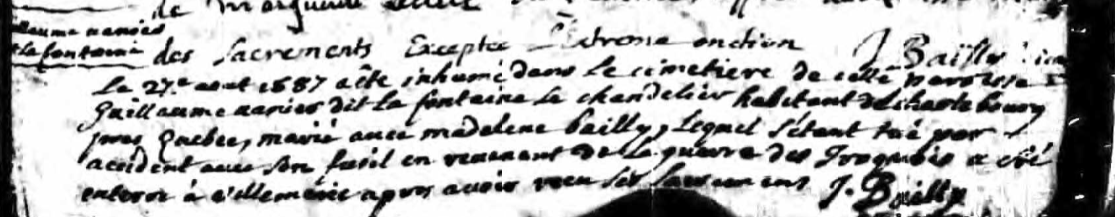 de Marguerite
Guillaume vanier
dit la fontaine
des sacrements Exceptee L'Extreme onction J Bailly
Le 27e aout 1687 a ete inhumé dans le cimetiere de cette paroisse
Guillaume vanier dit la fontaine le chandelier habitant de charlebourg
pres Quebec, marié avec madelene bailly, lequel s'étant tué par
accident avec son fusil en revenant de la guerre des Iroquois a été
enterré à apres avoir receu ses sacremens J. Bailly